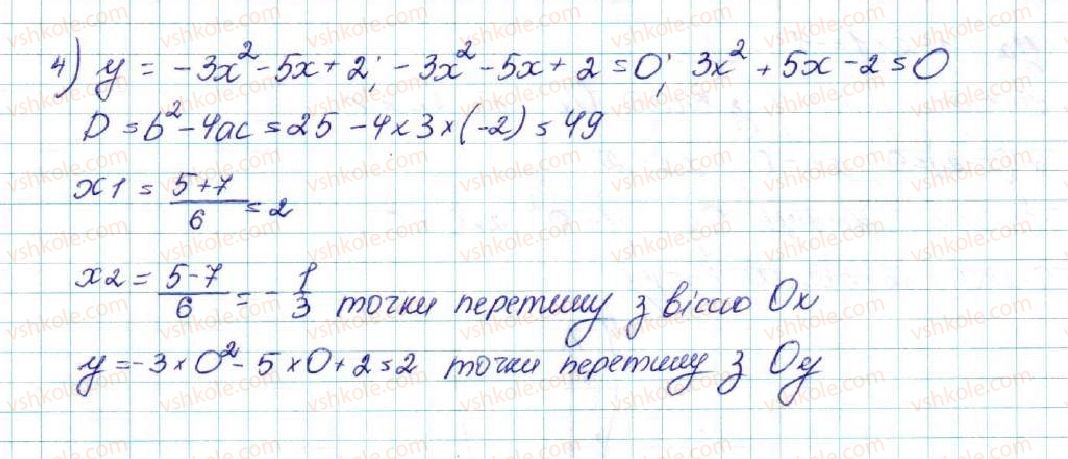 4) y = -3x² - 5x + 2; -3x² - 5x + 2 = 0; 3x² + 5x - 2 = 0
D = b² - 4ac = 25 - 4 × 3 × (-2) = 49
x1 = (5+7)/6 = 2
x2 = (5-7)/6 = -1/3 точки перетину з віссю Ox
y = -3 × 0² - 5 × 0 + 2 = 2 точки перетину з Oy